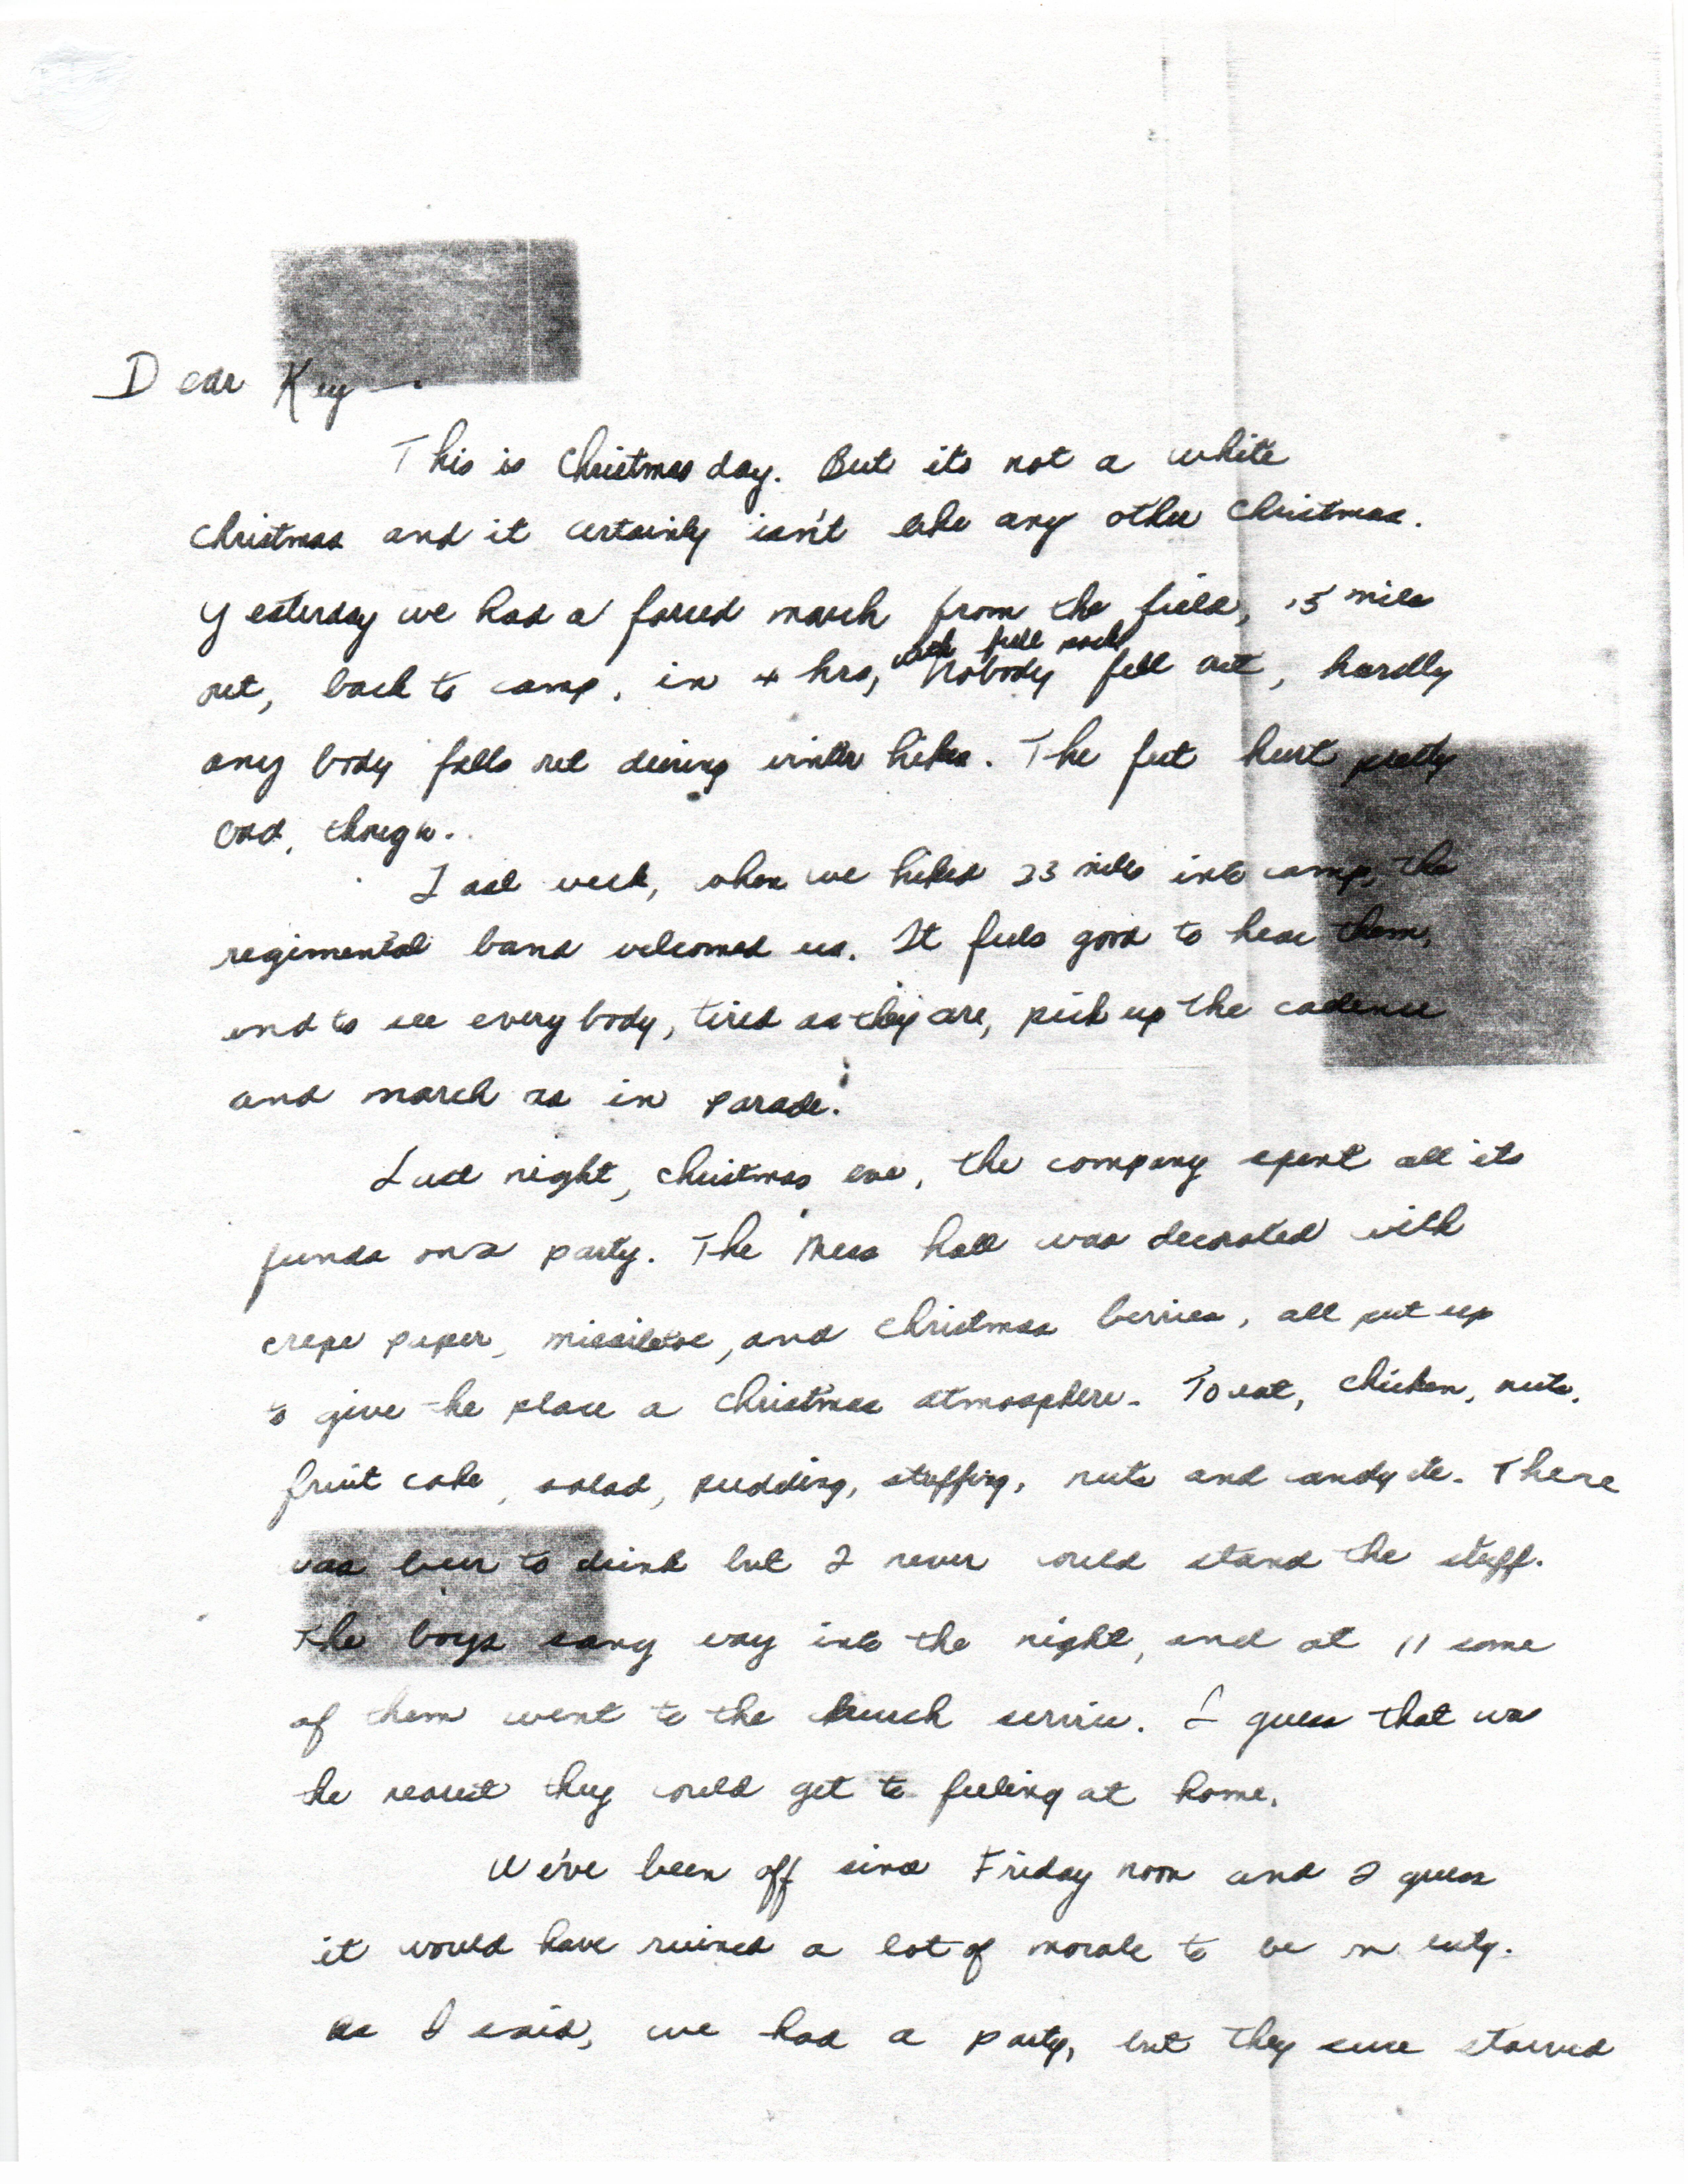 Dear Key —.
This is Christmas day. But its not a white
Christmas and it certainly isn't like any other Christmas.
Yesterday we had a forced march from the field, 15 mile
out, back to camp, in 4 hrs, with full pack
Nobody fell out, hardly
any body falls out during winter hikes. The feet hurt pretty
bad, though.
Last week, when we hiked 23 miles into camp, the
regimental band welcomed us. It feels good to hear them,
and to see every body, tired as they are, pick up the cadence
and march as in parade.
Last night, Christmas eve, the company spent all its
funds on a party. The Mess hall was decorated with
crepe paper, missiletoe, and Christmas berries, all put up
to give the place a Christmas atmosphere. To eat, chicken, nuts,
fruit cake, salad, pudding, stuffing, nuts and candy etc. There
was beer to drink but I never could stand the stuff.
The boys sang way into the night, and at 11 some
of them went to the church service. I guess that was
the nearest they could get to feeling at home.
We've been off since Friday noon and I guess
it would have ruined a lot of morale to be on duty.
As I said, we had a party, but they sure starved